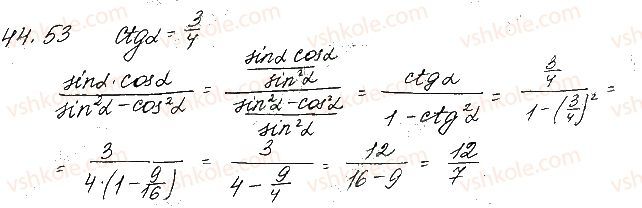 44.53 ctgα = 3/4
(sinα·cosα)/(sin²α − cos²α) = ((sinα cosα)/(sin²α))/((sin²α − cos²α)/(sin²α)) = (ctgα)/(1 − ctg²α) = (3/4)/(1 − (3/4)²) =
= 3/(4·(1 − 9/16)) = 3/(4 − 9/4) = 12/(16 − 9) = 12/7.
vshkole.com